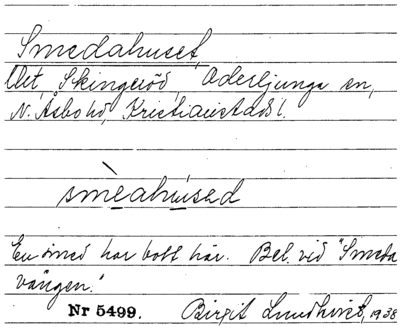 Smedahuset,
Uet, Skingeröd, Oderljunga sn,
N. Åsbo hd, Kristianstads l.
smèahúsed
En smed har bott här. Bel. vid "Smeda
vången."
Nr 5499. Birgit Lundkvist, 1938